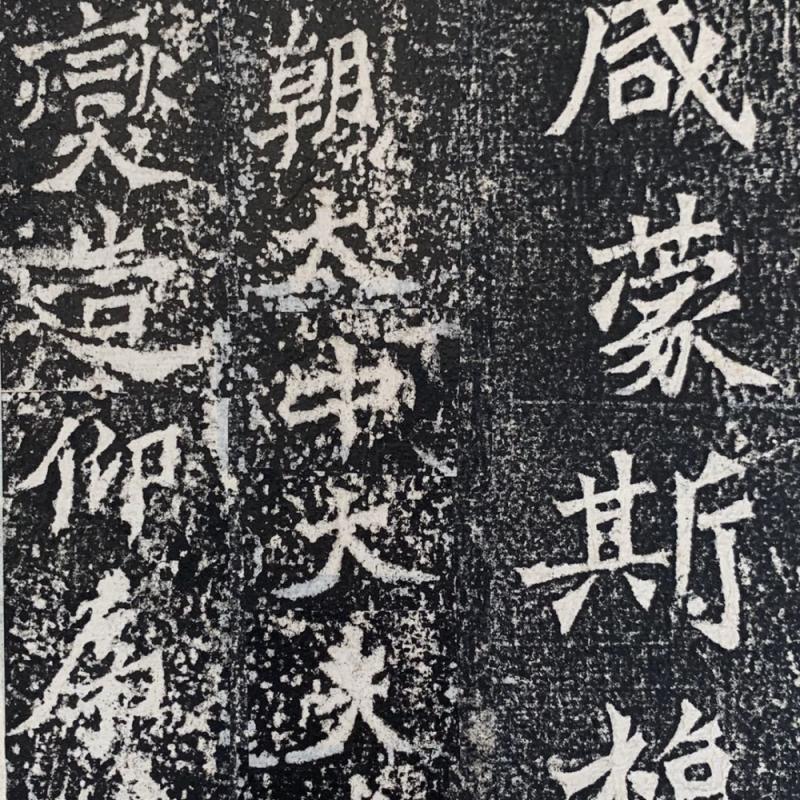 咸蒙斯
朝大中大夫
燮造仰